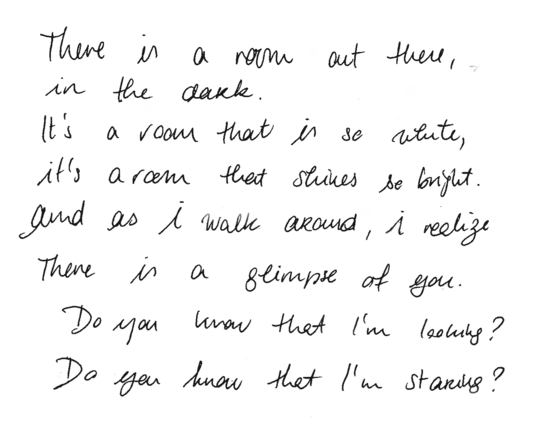 There is a room out there,
in the dark.
It's a room that is so white,
it's a room that shines so bright.
And as i walk around, i realize
There is a glimpse of you.
Do you know that I'm looking?
Do you know that I'm staring?